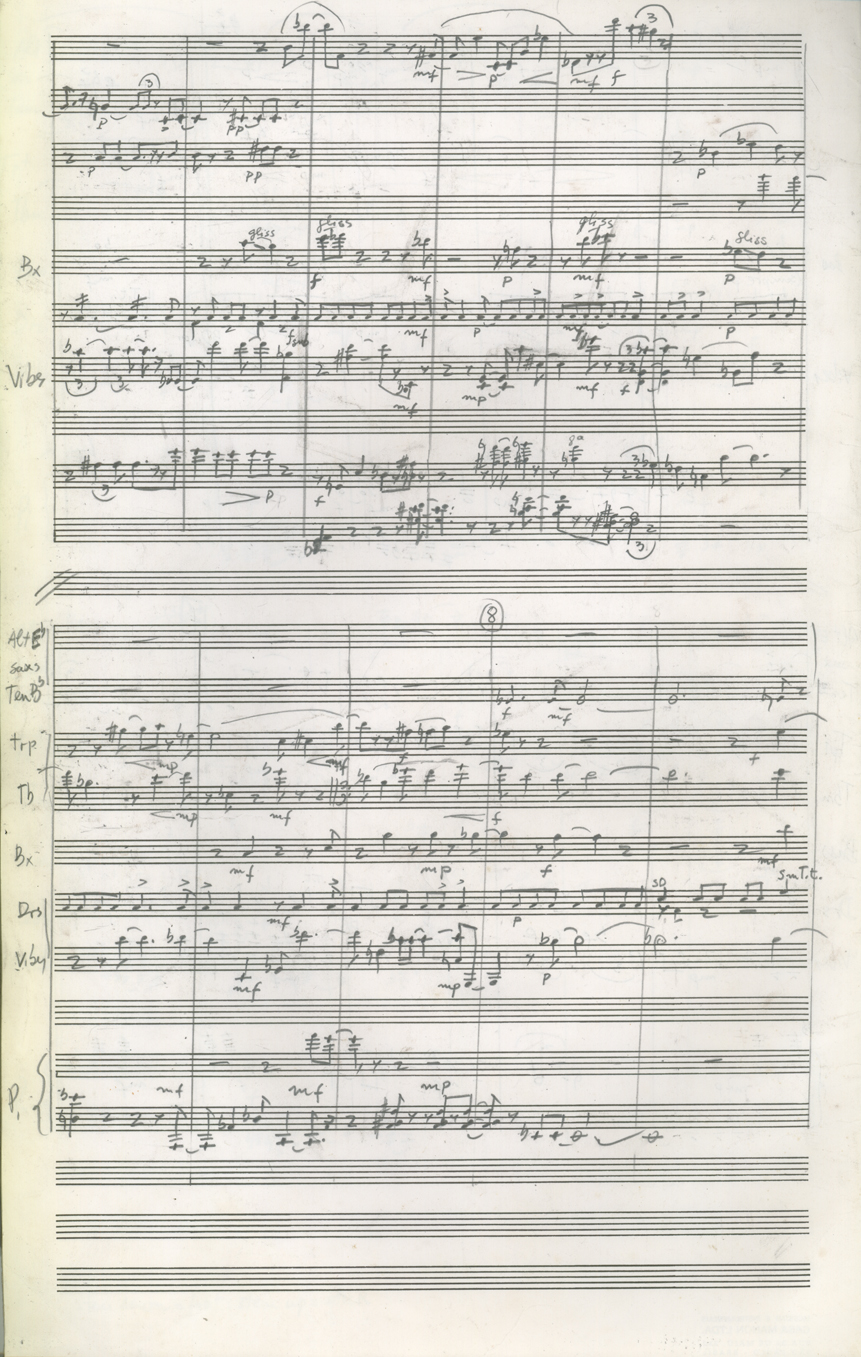 3
mf p mf f
3
p pp
p pp p
gliss gliss gliss gliss
Bx
f mf p mf p
fsub mf p mf p
Vibs
3 3 3
mf mp mf f
8a
3 3
p f
3
8
Alt Eb
saxs
Ten Bb
f mf
trp
mp mf f
Tb
mp mf f
Bx
mf mp f mf
sm T.t.
Drs
SD
mf p
Vibs
mf mp p
P.
mf mf mp